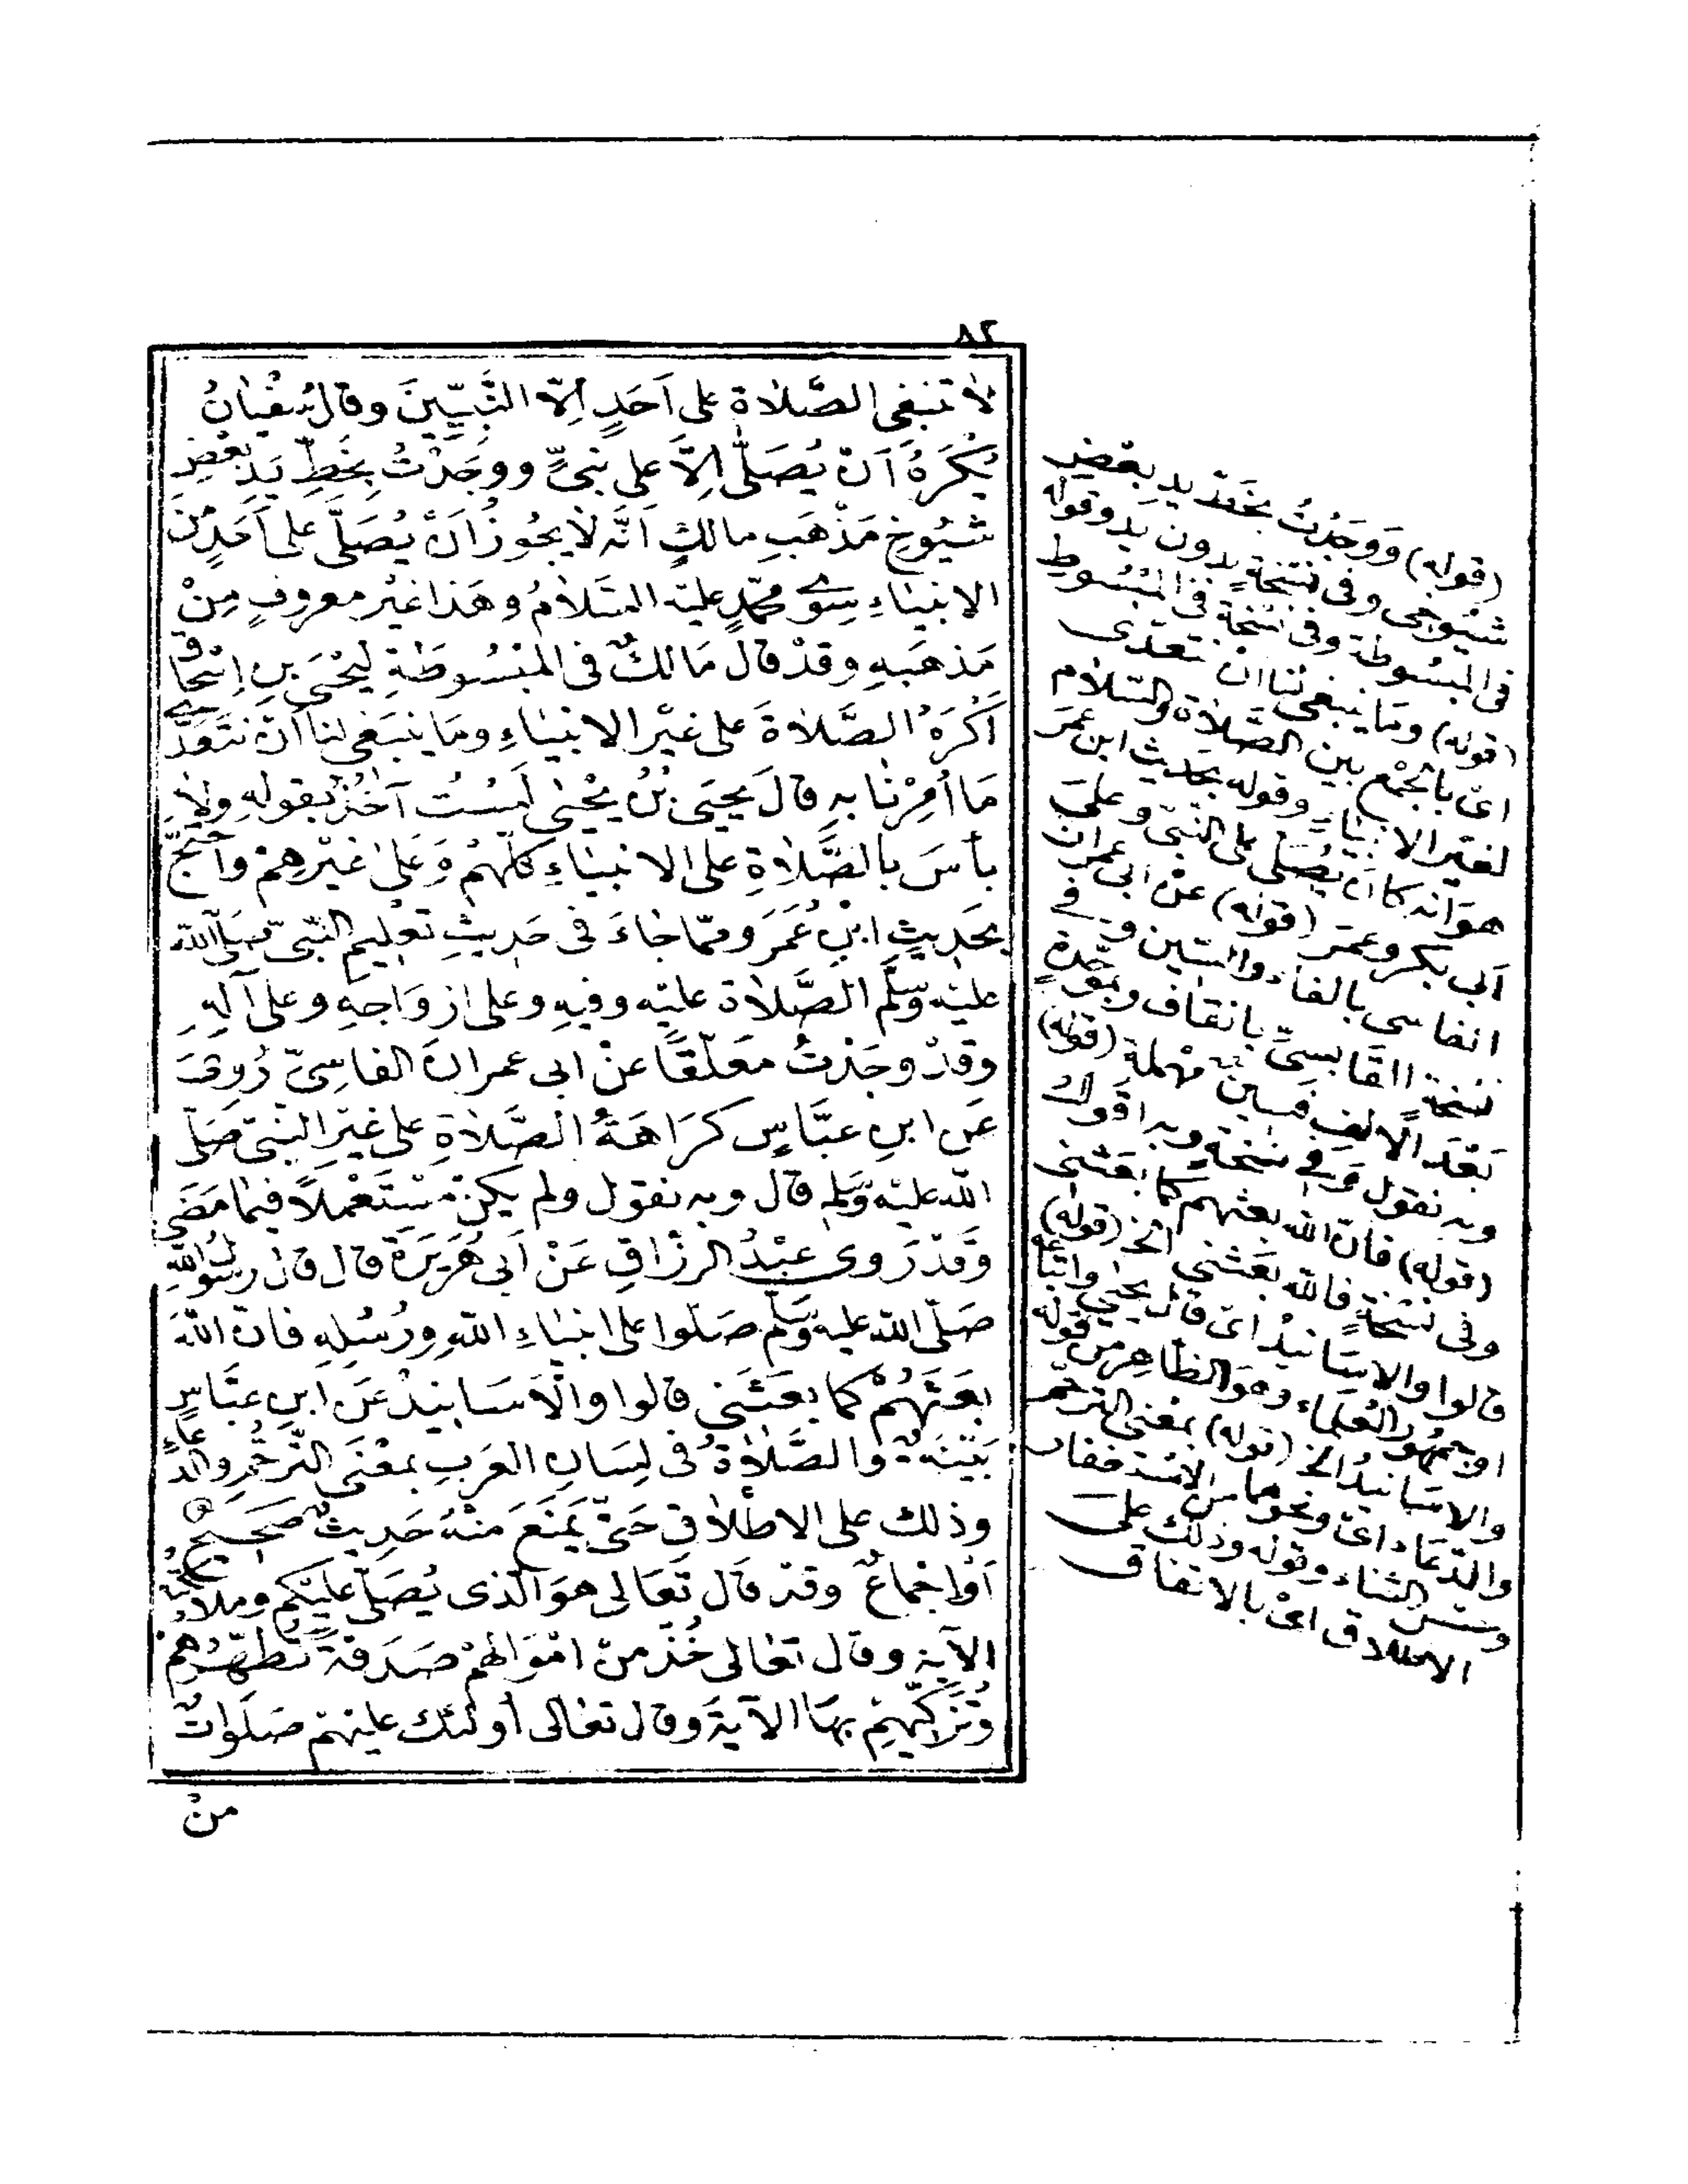 ٨٢
لَا تَنْبَغِي الصَّلَاةُ عَلَى أَحَدٍ إِلَّا النَّبِيِّينَ وَقَالَ سُفْيَانُ
يُكْرَهُ أَنْ يُصَلَّى إِلَّا عَلَى نَبِيٍّ وَوَجَدْتُ بِخَطِّ يَدِ بَعْضِ
شُيُوخِي مَذْهَبِ مَالِكٍ أَنَّهُ لَا يَجُوزُ أَنْ يُصَلَّى عَلَى أَحَدٍ مِنَ
الأنبياءِ سِوَى مُحَمَّدٍ عَلَيْهِ السَّلَامُ وَهَذَا غَيْرُ مَعْرُوفٍ مِنْ
مَذْهَبِهِ وَقَدْ قَالَ مَالِكٌ فِي الْمَبْسُوطَةِ لِيَحْيَى بنِ إِسْحَاقَ
أَكْرَهُ الصَّلَاةَ عَلَى غَيْرِ الأنبياءِ وَمَا يَنْبَغِي لَنَا أَنْ نَتَعَدَّى
مَا أُمِرْنَا بِهِ قَالَ يَحْيَى بْنُ يَحْيَى لَسْتُ آخُذُ بِقَوْلِهِ وَلَا
بَأْسَ بِالصَّلَاةِ عَلَى الأنبياءِ كُلِّهِمْ وَعَلَى غَيْرِهِمْ وَاحْتَجَّ
بِحَدِيثِ ابْنِ عُمَرَ وَمِمَّا جَاءَ فِي حَدِيثِ تَعْلِيمِ النَّبِيِّ صَلَّى اللَّه
عَلَيْهِ وَسَلَّمَ الصَّلَاةَ عَلَيْهِ وَفِيهِ وَعَلَى أَزْوَاجِهِ وَعَلَى آلِهِ
وَقَدْ وَجَدْتُ مُعَلَّقًا عَنْ أَبِي عِمْرَانَ الْفَاسِيِّ رُوِيَ
عَنِ ابْنِ عَبَّاسٍ كَرَاهَةُ الصَّلَاةِ عَلَى غَيْرِ النَّبِيِّ صَلَّى
اللهُ عَلَيْهِ وَسَلَّمَ قَالَ وَبِهِ نَقُولُ وَلَمْ يَكُنْ مُسْتَعْمَلًا فِيمَا مَضَى
وَقَدْ رَوَى عَبْدُ الرَّزَّاقِ عَنْ أَبِي هُرَيْرَةَ قَالَ قَالَ رَسُولُ اللهِ
صَلَّى اللهُ عَلَيْهِ وَسَلَّمَ صَلُّوا عَلَى أنبياءِ اللهِ وَرُسُلِهِ فَإِنَّ اللهَ
بَعَثَهُمْ كَمَا بَعَثَنِي قَالُوا وَالْأَسَانِيدُ عَنِ ابْنِ عَبَّاسٍ
لَيِّنَةٌ وَالصَّلَاةُ فِي لِسَانِ الْعَرَبِ بِمَعْنَى التَّرَحُّمِ وَالدُّعَاءِ
وَذَلِكَ عَلَى الْإِطْلَاقِ حَتَّى يَمْنَعَ مِنْهُ حَدِيثٌ صَحِيحٌ
أَوْ إِجْمَاعٌ وَقَدْ قَالَ تَعَالَى هُوَ الَّذِي يُصَلِّي عَلَيْكُمْ وَمَلَائِكَتُهُ
الآيَةَ وَقَالَ تَعَالَى خُذْ مِنْ أَمْوَالِهِمْ صَدَقَةً تُطَهِّرُهُمْ
وَتُزَكِّيهِمْ بِهَا الآيَةَ وَقَالَ تَعَالَى أُولَئِكَ عَلَيْهِمْ صَلَوَاتٌ
مِنْ
(قوله) وَوَجَدْتُ بخط يدِ بعْضِ
شيوخى وفى نسخةٍ بدون يد وقوله
فى المبسُوطة وفى نسخة فى المبْسُوطِ
(قوله) وما ينبغى لنا أن نتعدى
اى بالجمْع بين الصَّلاة والسَّلام
لغير الانبياء وقوله بحديث ابن عمَر
هوَ انه كانَ يُصَلى على النبى وعلى
أبى بكر وعمَر (قوله) عن ابى عمران
الفاسى بالفاء والسّين وفى
نسخة القابسىّ بالقاف وبموحّدةٍ
بَعْدَ الألِف فسِين مهْملة (قوله)
وبه نقول وفى نسخة وبه اقول
(قوله) فانّ الله بعثهم كما بعثنى
وفى نسخةٍ فالله بعَثنى الخ (قوله)
قالوا والاسَانيدُ اى قال يحيى واتباعه
او جمهُور العُلماء وهوَ الظاهِر من قوله
والاسَانيدُ الخ (قوله) بمعْنى الترحّم
والدّعَاء اىْ ونحوهما من الاسْتغفار
وحسْن الثناء وقوله وذلك على
الاطلاق اىْ بالاتفاق